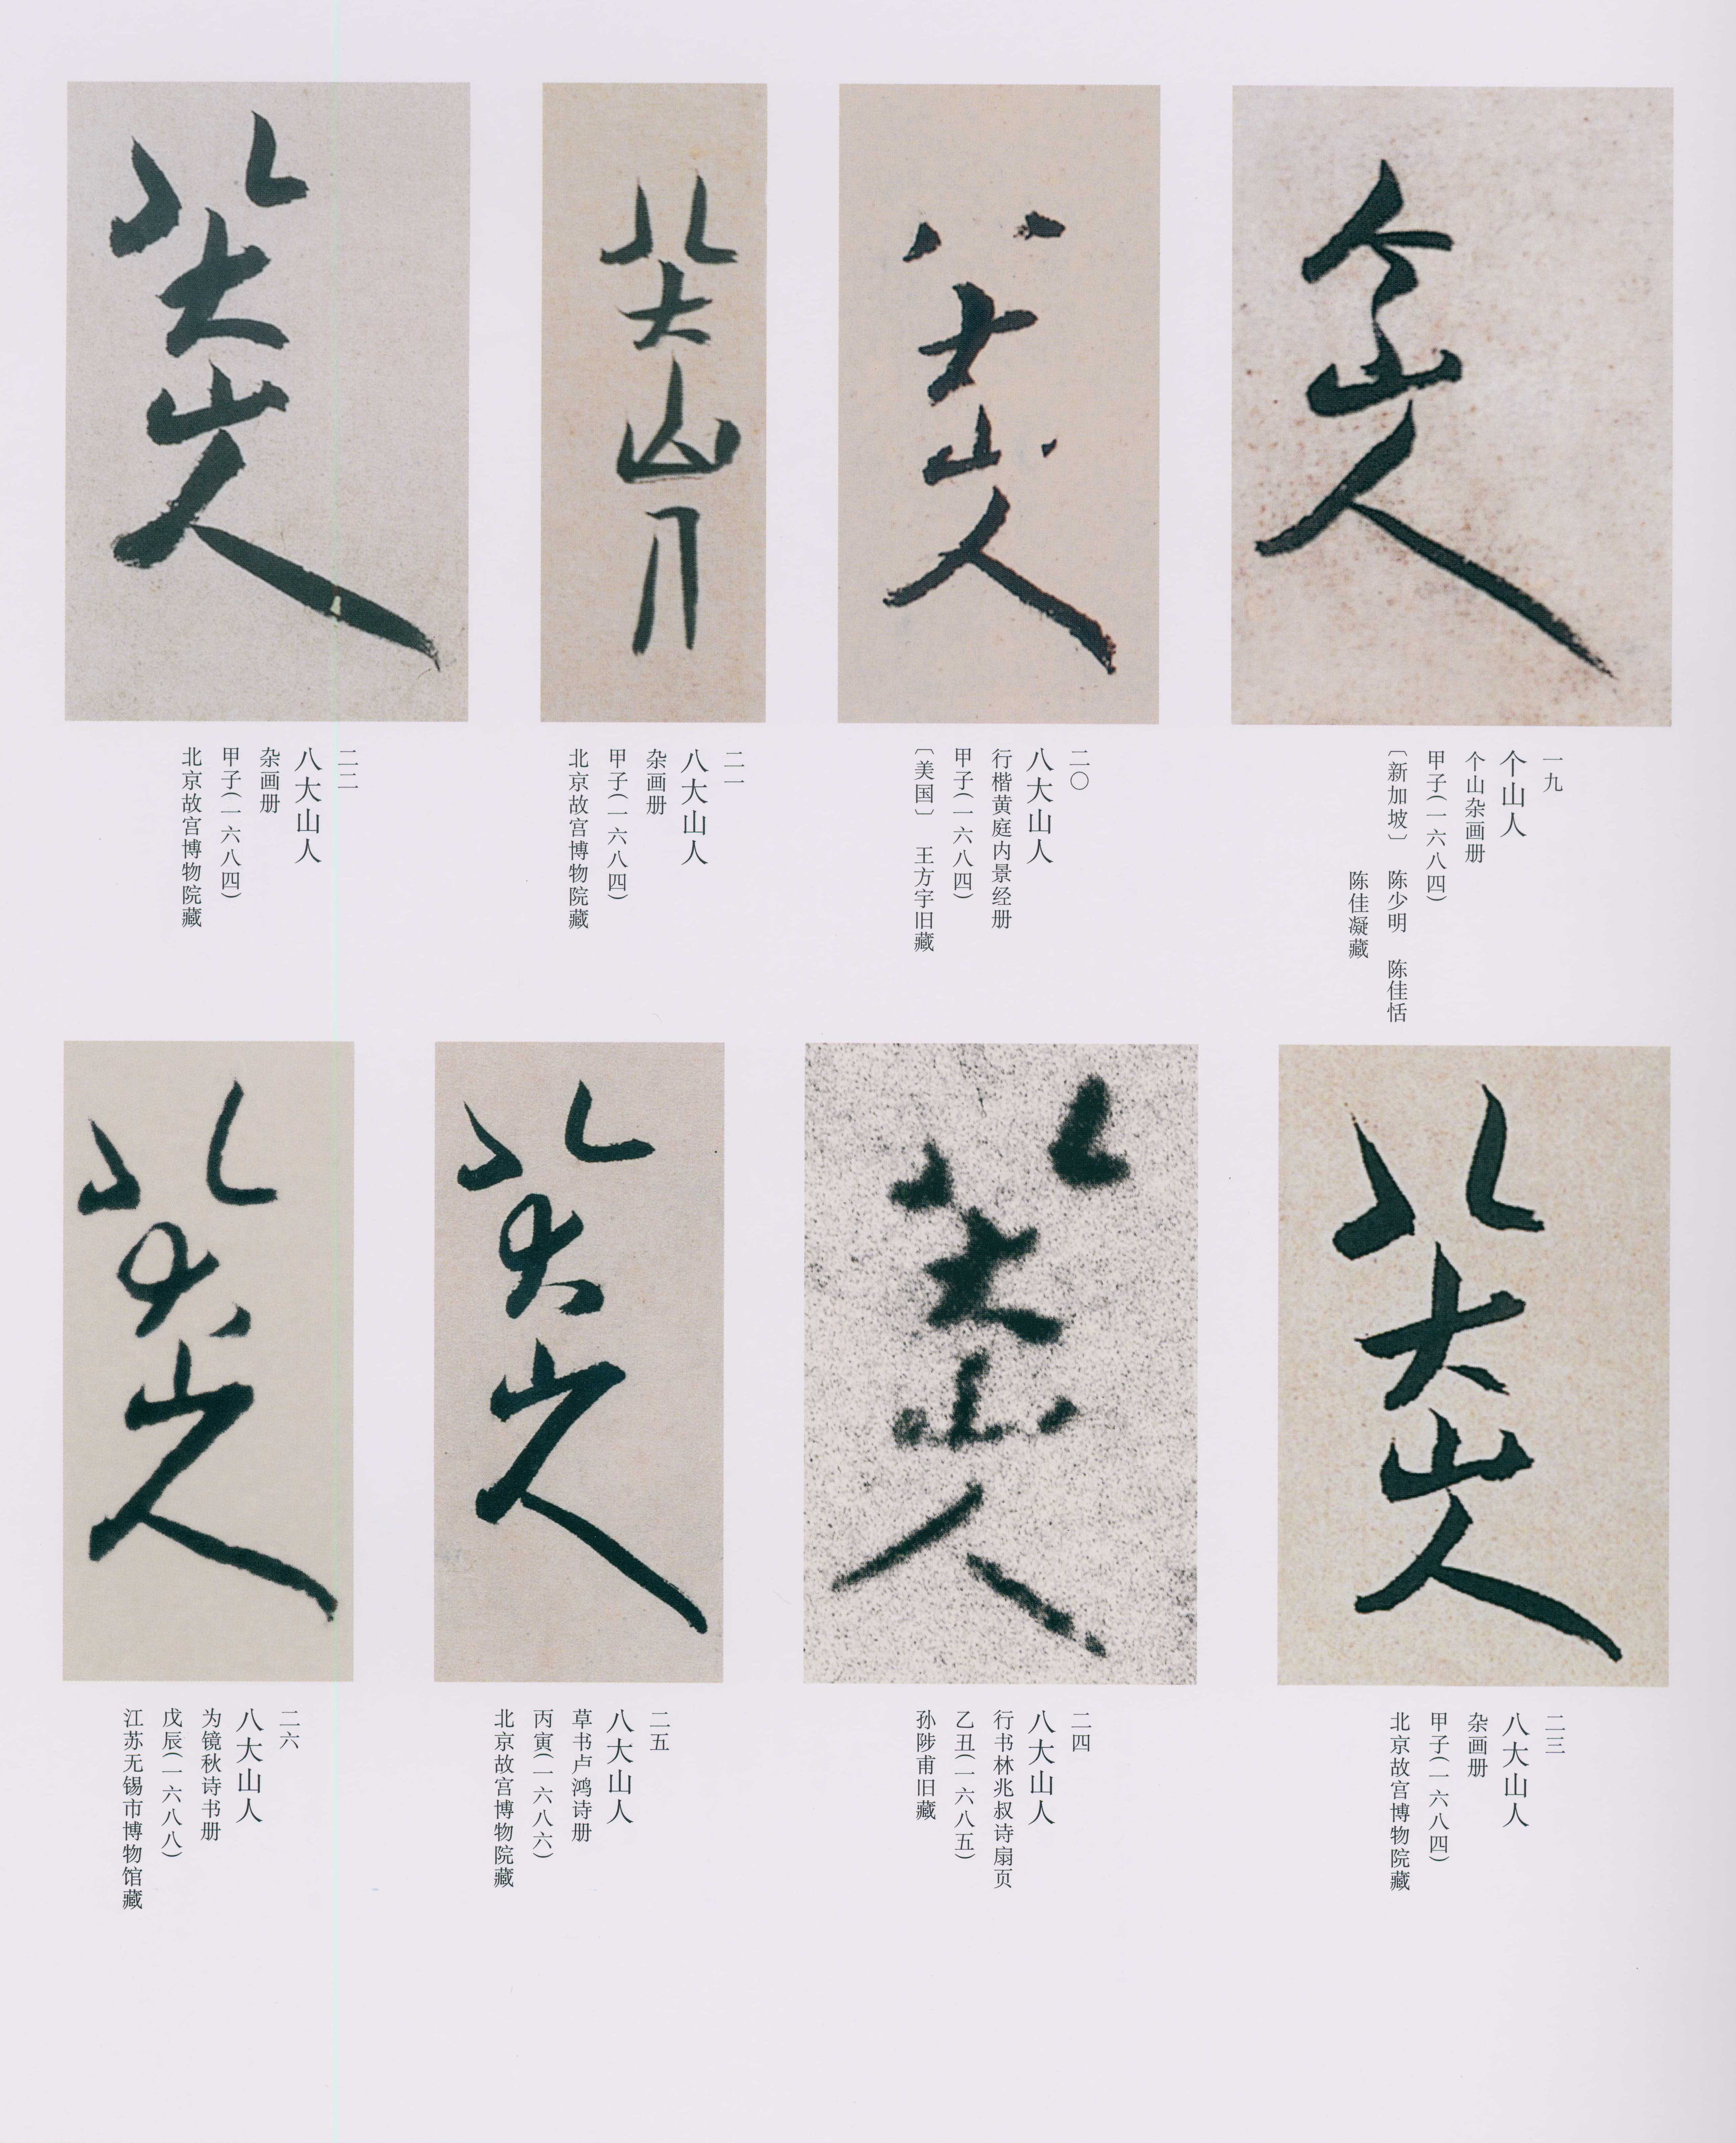 个山人
一九
个山人
个山杂画册
甲子(一六八四)
〔新加坡〕 陈少明 陈佳恬
陈佳凝藏
八大山人
二〇
八大山人
行楷黄庭内景经册
甲子(一六八四)
〔美国〕 王方宇旧藏
八大山人
二一
八大山人
杂画册
甲子(一六八四)
北京故宫博物院藏
八大山人
二二
八大山人
杂画册
甲子(一六八四)
北京故宫博物院藏
八大山人
二三
八大山人
杂画册
甲子(一六八四)
北京故宫博物院藏
八大山人
二四
八大山人
行书林兆叔诗扇页
乙丑(一六八五)
孙陟甫旧藏
八大山人
二五
八大山人
草书卢鸿诗册
丙寅(一六八六)
北京故宫博物院藏
八大山人
二六
八大山人
为镜秋诗书册
戊辰(一六八八)
江苏无锡市博物馆藏